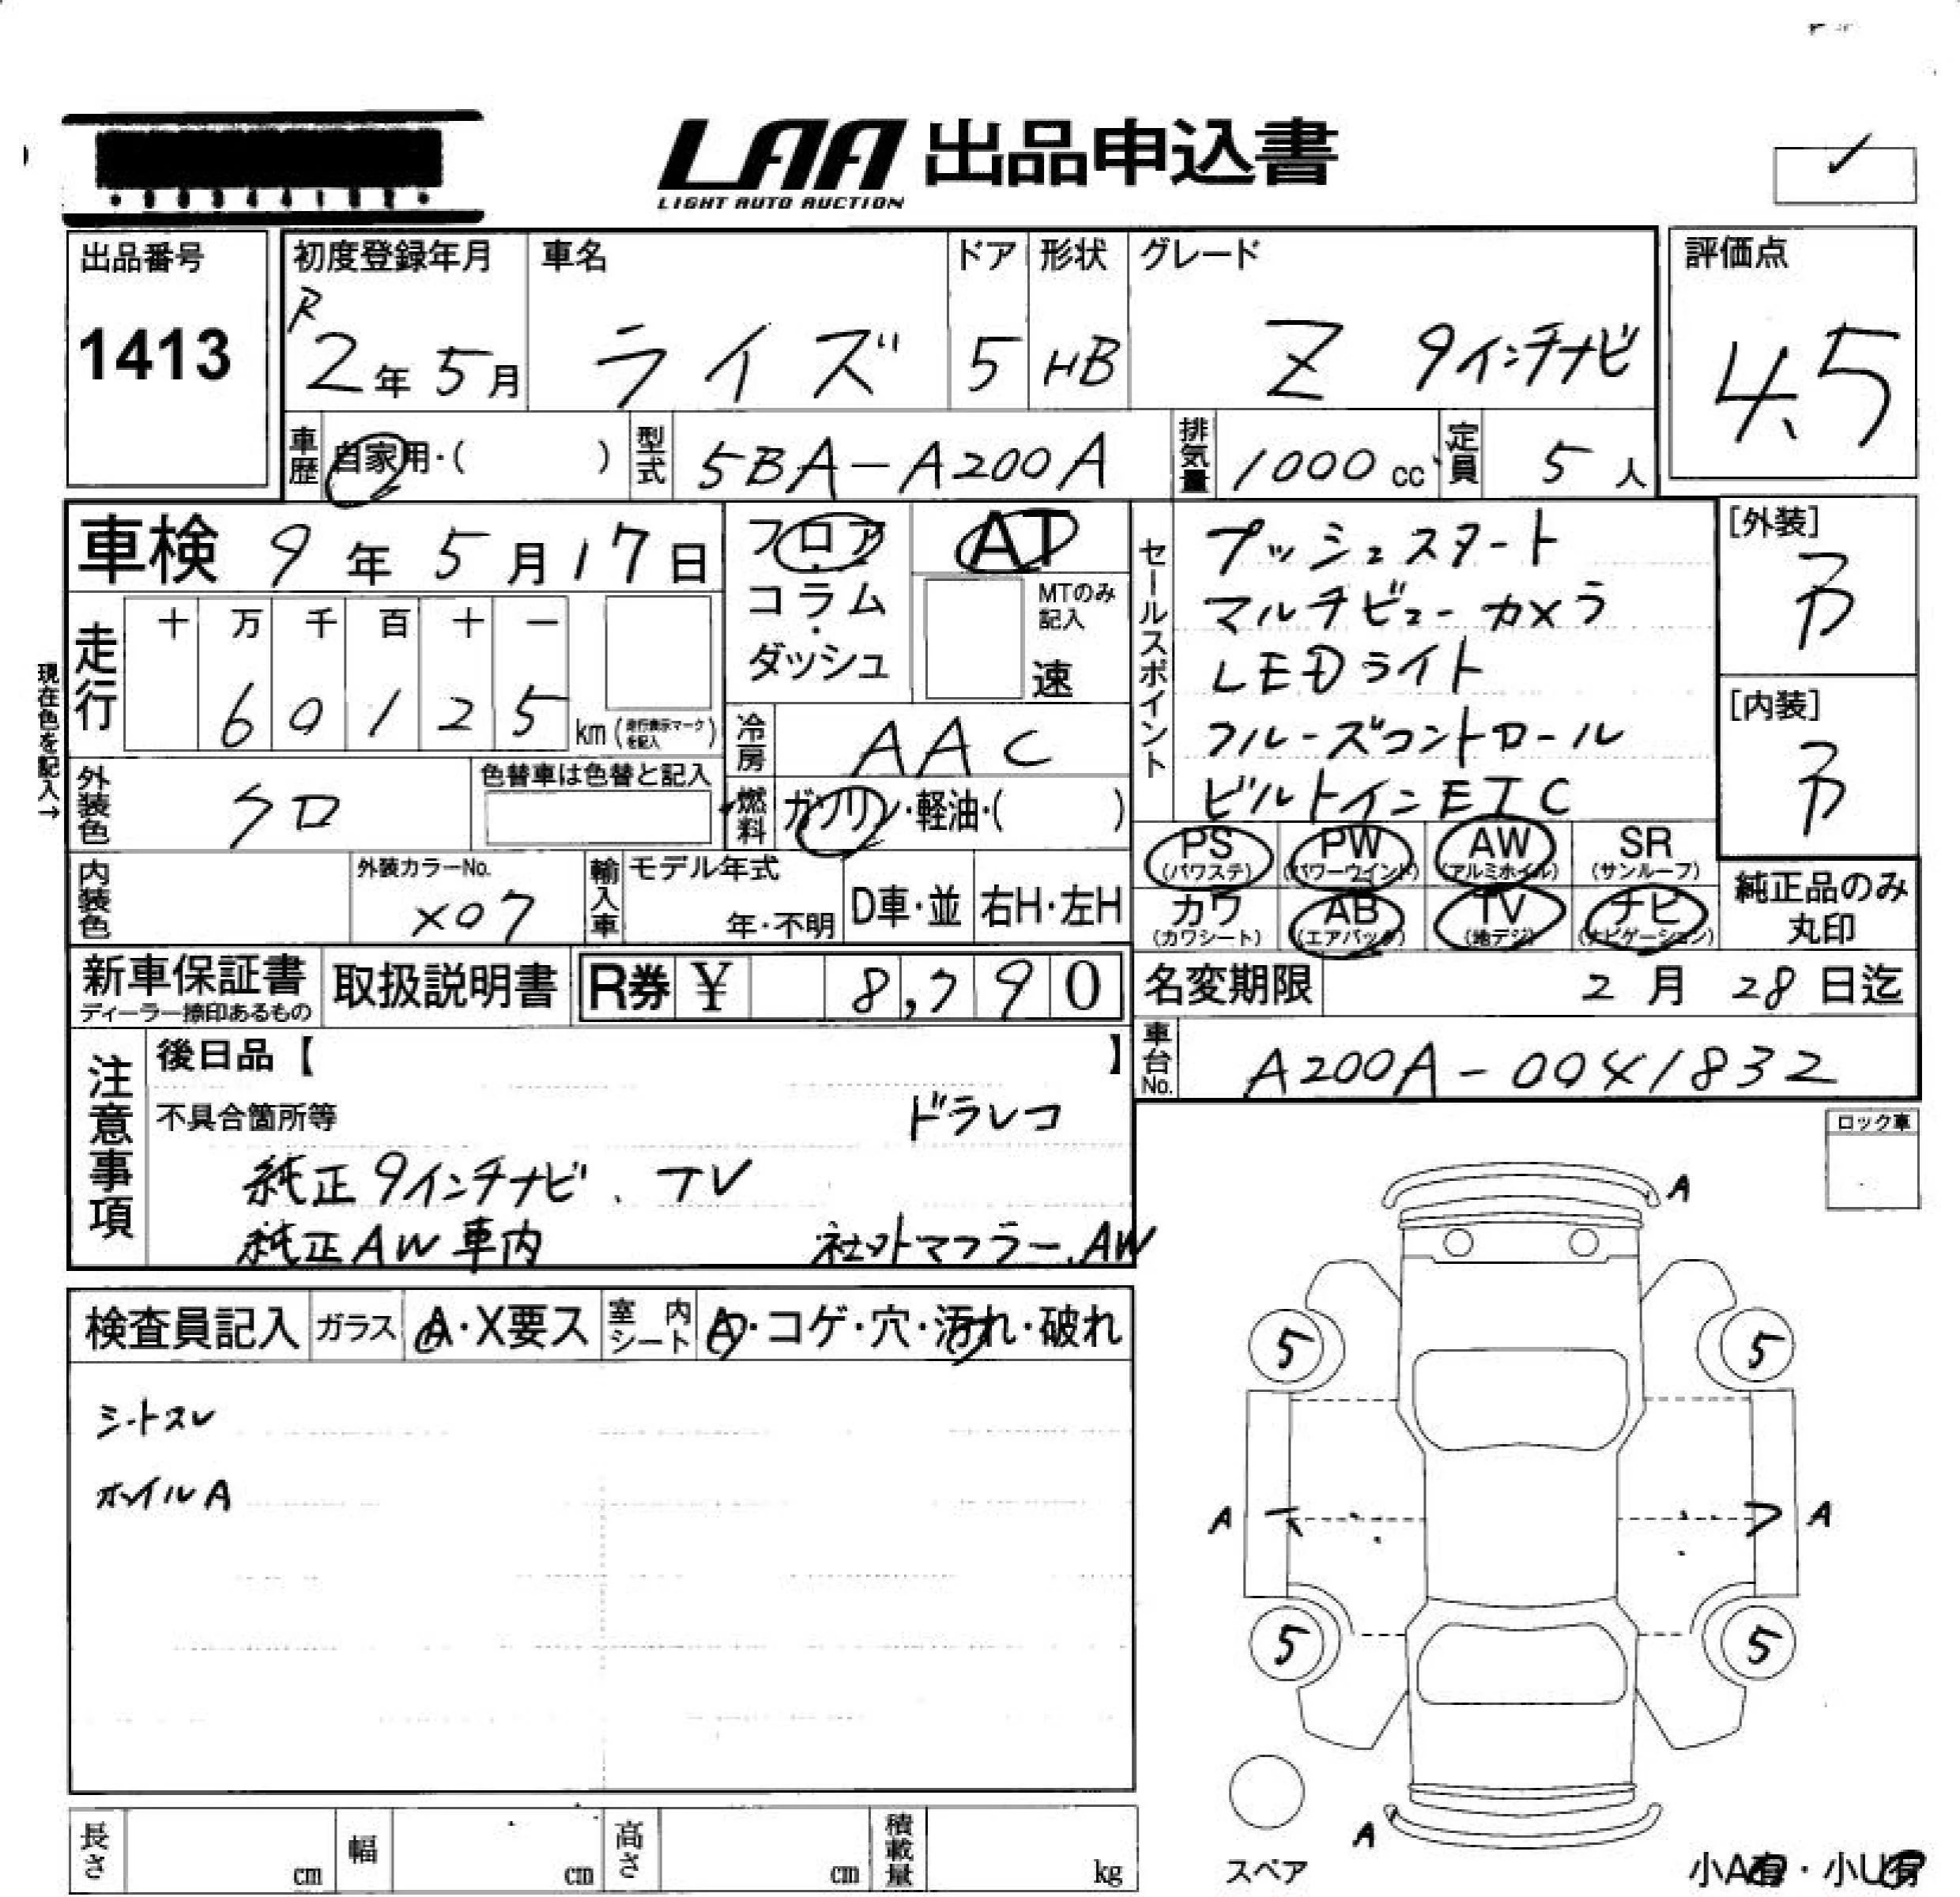 LAA 出品申込書
LIGHT AUTO AUCTION
出品番号
1413
初度登録年月
R
2年5月
車名
ライズ
ドア
5
形状
HB
グレード
Z 9インチナビ
評価点
4.5
車歴
自家用・( )
型式
5BA-A200A
排気量
1000cc
定員
5人
車検 9年5月17日
フロア
・
コラム
・
ダッシュ
AT
MTのみ
記入
速
セールスポイント
プッシュスタート
マルチビューカメラ
LEDライト
クルーズコントロール
ビルトインETC
[外装]
[内装]
現在色を記入→
走行
十 万 千 百 十 一
6 0 1 2 5 km(走行表示マークを記入)
冷房
AAC
外装色
クロ
色替車は色替と記入
燃料
ガソリン・軽油・( )
PS
(パワステ)
PW
(パワーウインド)
AW
(アルミホイル)
SR
(サンルーフ)
カワ
(カワシート)
AB
(エアバック)
TV
(地デジ)
ナビ
(ナビゲーション)
純正品のみ
丸印
内装色
外装カラーNo.
X07
輸入車
モデル年式
年・不明
D車・並
右H・左H
新車保証書
ディーラー捺印あるもの
取扱説明書
R券 ¥ 8,790
名変期限
2月28日迄
車台No.
A200A-0041832
注意事項
後日品【 】
不具合箇所等
ドラレコ
純正9インチナビ、TV
純正AW車内
社外マフラー、AW
ロック車
検査員記入
ガラス
A・X要ス
室内
シート
A・コゲ・穴・汚れ・破れ
シートスレ
ホイルA
A
5
5
A
A
5
5
A
スペア
小A有・小U有
長さ
cm
幅
cm
高さ
cm
積載量
kg